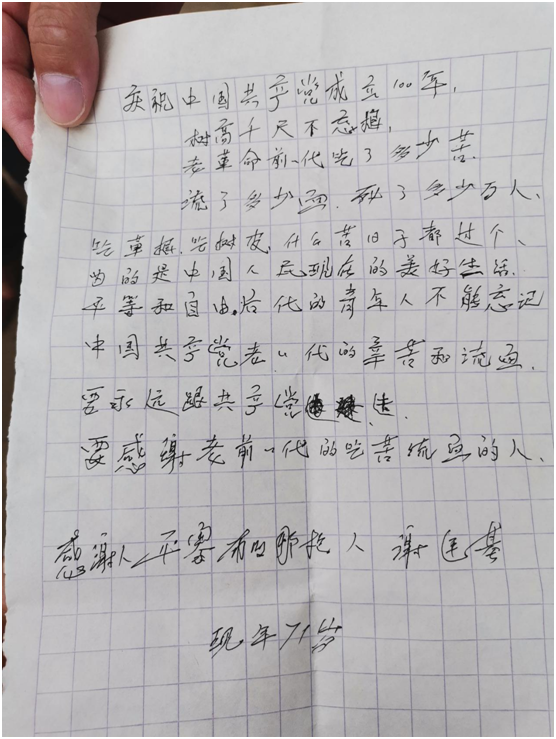 庆祝中国共产党成立100年,
树高千尺不忘根,
老革命前一代吃了多少苦
流了多少血、死了多少万人、
吃草根、吃树皮、什么苦日子都过个、
为的是中国人民现在的美好生活、
平等和自由。后代的青年人不能忘记
中国共产党老一代的辛苦和流血、
要永远跟共产党走、
要感谢老前一代的吃苦流血的人、
感谢人 平寨 人 谢廷基
现年71岁